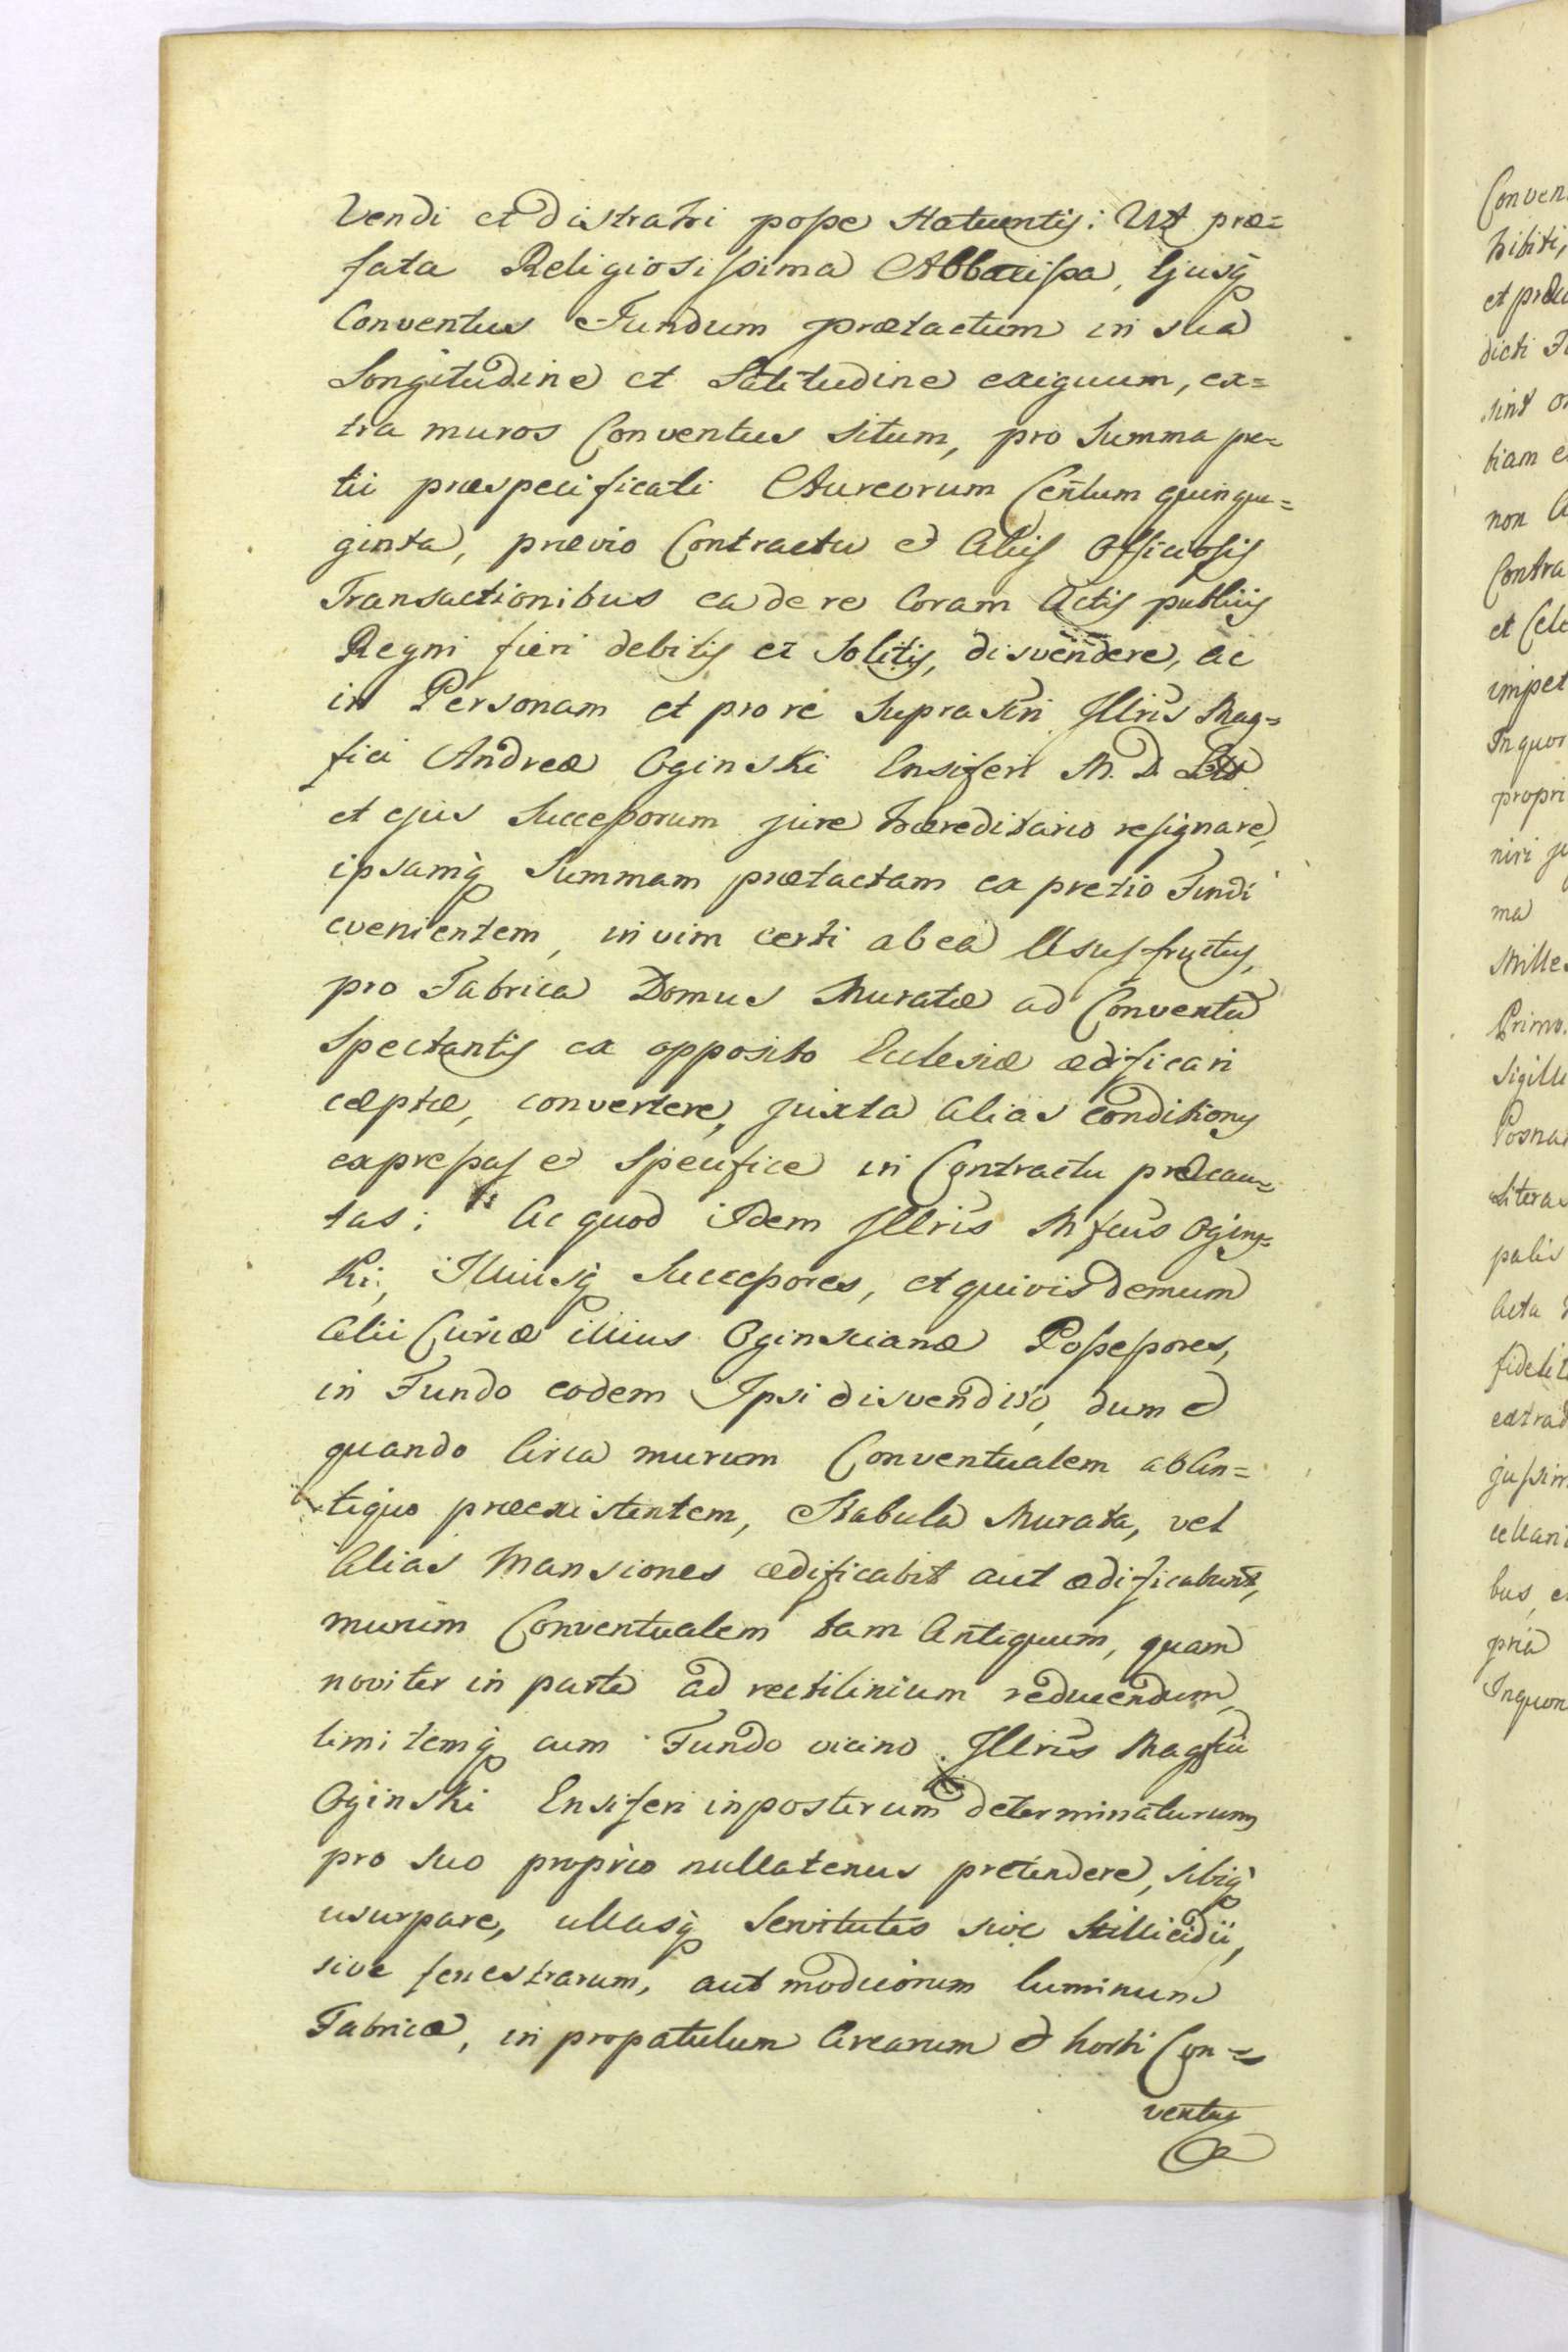 Vendi et distrahi posse statuentis: Ut præ=
fata Religiosissima Abbatissa, Ejusq̀
Conventus Fundum prætactum in sua
Longitudine et Latitudine exiguum, ex=
tra muros Conventus situm, pro Summa pre=
tii præspecificati Aureorum Centum quinqua=
ginta, prævio Contractu et Aliis Officiosis
Transactionibus ea de re Coram Actis publicis
Regni fieri debitis et Solitis, disvendere, ac
in Personam et pro re Suprascri Illris Mag=
fici Andreæ Oginski Ensiferi M. D. Litt
et ejus Successorum jure hæreditario resignare,
ipsamq̀ Summam prætactam ex pretio Fundi
evenientem, in vim certi ab ea Ususfructus,
pro Fabrica Domus Muratæ ad Conventum
Spectantis ex opposito Ecclesiæ ædificari
cæptæ, convertere, juxta alias conditiones
expressas et Specifice in Contractu præcau=
tas: Ac quod idem Illris Mfcus Ogins=
ki, Illiusq̀ Successores, et quivis demum
Alii Curiæ illius Oginscianæ Possessores,
in Fundo eodem Ipsi disvendito, dum et
quando Circa murum Conventualem ab An=
tiquo præexistentem, Stabula Murata, vel
Alias Mansiones ædificabit aut ædificabunt,
murum Conventualem tam Antiquum, quam
noviter in parte ad rectilinium reducendum,
limitemq̀ cum Fundo vicino Illris Magfici
Oginski Ensiferi inposterum determinaturum
pro suo proprio nullatenus pretendere, sibiq̀
usurpare, ullasq̀ Servitutes sive Stillicidii,
sive fenestrarum, aut modicorum luminum
Fabricæ, in propatulum Arearum et horti Con=
ventus
Conven
hibiti,
et præ
dicti
sint
tiam
non
Contra
et Cel
impet
In quor
propri
niri
ma
Mille
Primo.
Sigill
Posna
Litera
palis
Acta
fidelit
extrad
jussim
cellari
bus,
pria
In quor